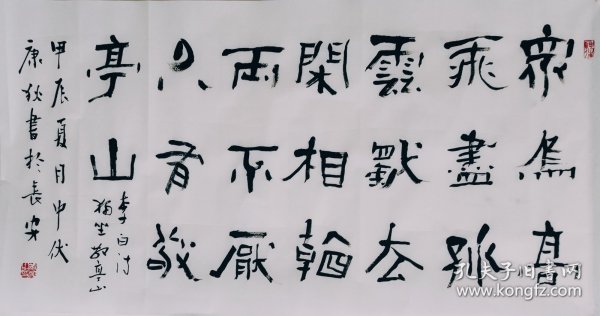 眾鳥高
飛盡孤
雲獨去
閑相看
兩不厭
只有敬
亭山
李白诗
独坐敬亭山
甲辰夏月中伏
康狄書於長安
孔夫子旧书网
www.kongfz.com